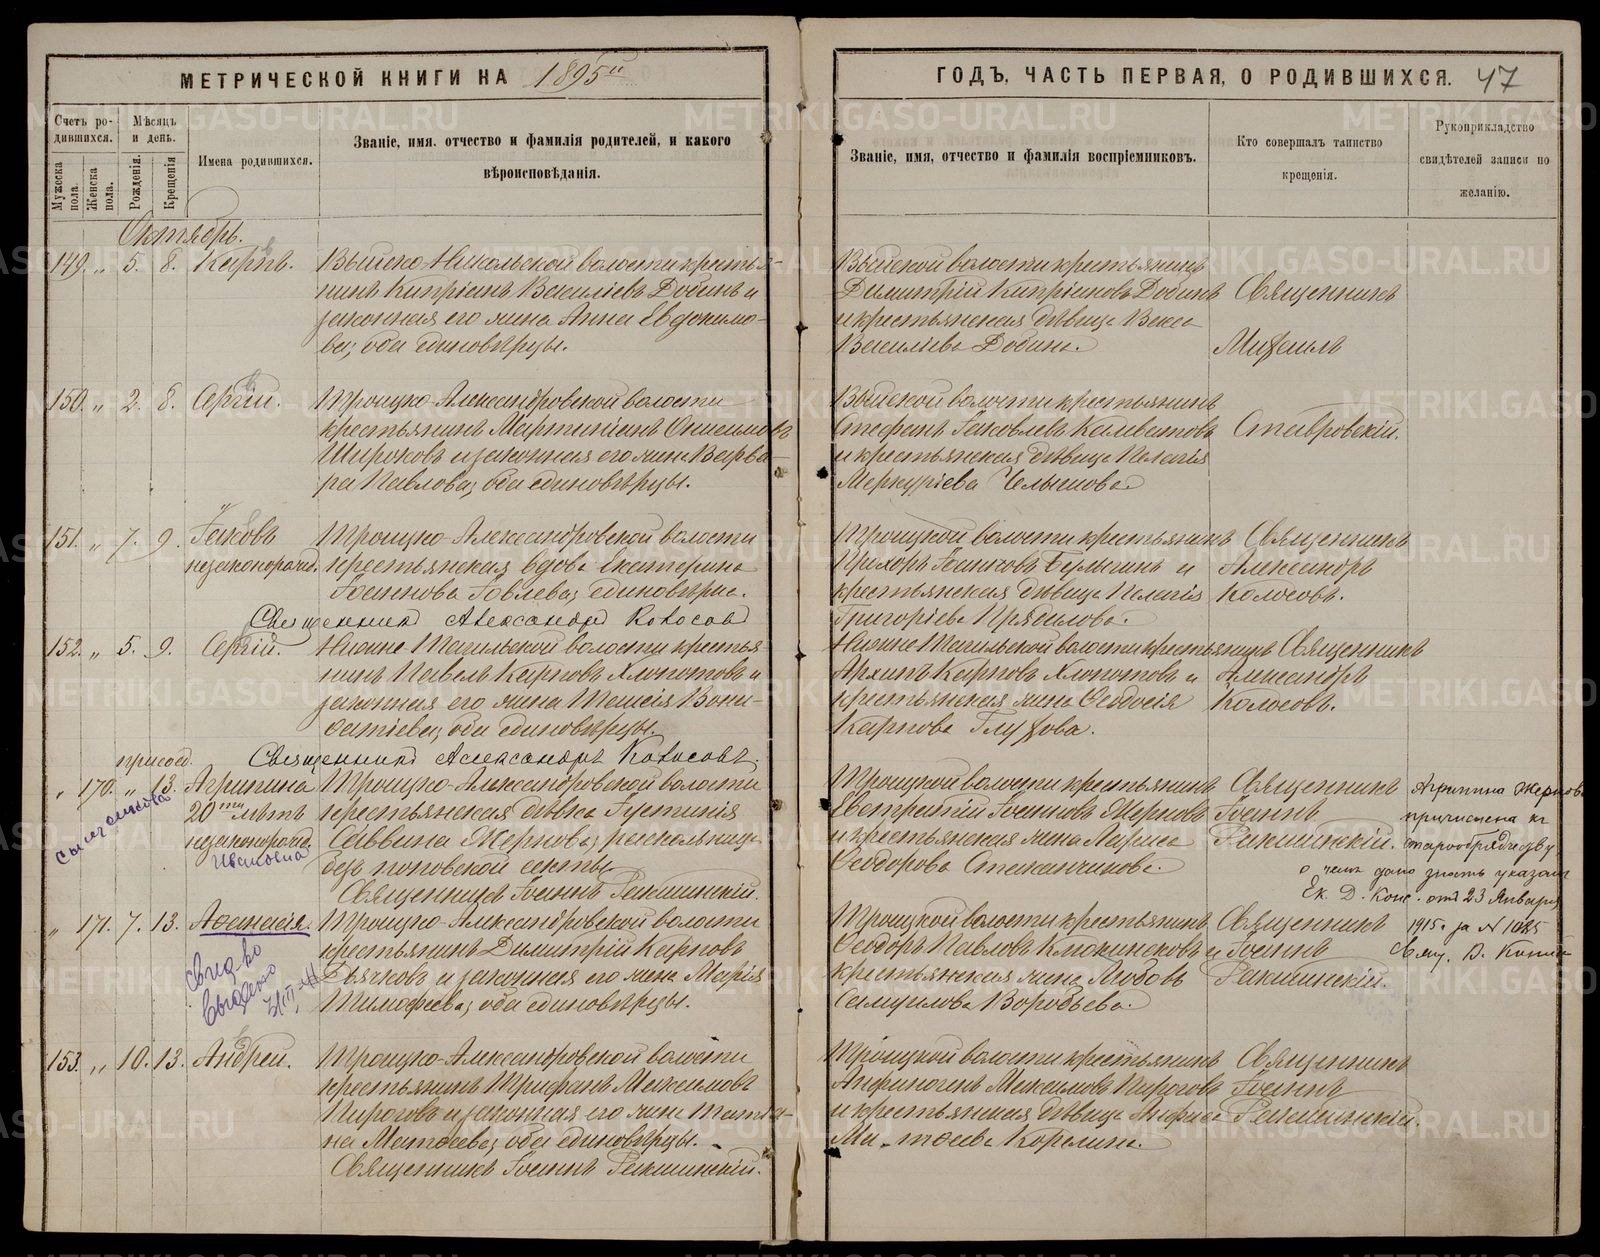 МЕТРИЧЕСКОЙ КНИГИ НА 1895й
ГОДЪ, ЧАСТЬ ПЕРВАЯ, О РОДИВШИХСЯ. 47
Счетъ ро-
дившихся.
Мужеска пола.
Женска пола.
Мѣсяцъ
и день.
Рожденія.
Крещенія
Имена родившихся.
Званіе, имя. отчество и фамилія родителей, и какого
вѣроисповѣданія.
Званіе, имя, отчество и фамилія воспріемниковъ.
Кто совершалъ таинство
крещенія.
Рукоприкладство
свидѣтелей записи по
желанію.
Октябрь.
149. „ 5. 8. Карпъ.
Выйско-Никольской волости крестья-
нинъ Кипріанъ Васильевъ Добинъ и
законная его жена Анна Евдокимо-
ва; оба единовѣрцы.
Выйской волости крестьянинъ
Димитрій Кипріановъ Добинъ
и крестьянская дѣвица Васса
Васильева Добина.
Священникъ
Михаилъ
150. „ 2. 8. Сергій.
Троицко-Александровской волости
крестьянинъ Мартиніанъ Онисимовъ
Широковъ и законная его жена Варва-
ра Павлова; оба единовѣрцы.
Выйской волости крестьянинъ
Стефанъ Іаковлевъ
и крестьянская дѣвица Пелагія
Меркуріева Челышова.
Ставровскій.
151. „ 7. 9. Іаковъ
незаконорожд.
Троицко-Александровской волости
крестьянская вдова Екатерина
Іоаннова единовѣрка.
Священникъ Александръ Колосовъ
Троицкой волости крестьянинъ
Прохоръ Іоанновъ Булыгинъ и
крестьянская дѣвица Пелагія
Григоріева Прядилова.
Священникъ
Александръ
Колосовъ.
152. „ 5. 9. Сергій.
Нижне Тагильской волости крестья
нинъ Павелъ Карповъ Хлопотовъ и
законная его жена Таисія Вони-
фатіева; оба единовѣрцы.
Священникъ Александръ Колосовъ.
Нижне Тагильской волости крестьянинъ
Архипъ Карповъ Хлопотовъ и
крестьянская жена Ѳеодосія
Карпова Глухова.
Священникъ
Александръ
Колосовъ.
присоед.
„ 170. „ 13. Агрипина
20ти лѣтъ
незаконорожд.
Ивановна
Троицко-Александровской волости
крестьянская дѣвка Іустинія
Саввина Жернова; раскольница
безъ поповской секты.
Священникъ Іоаннъ Ракшинскій.
Троицкой волости крестьянинъ
Евстратій Іоанновъ Жерновъ
и крестьянская жена Лариса
Ѳеодорова Стаканчикова.
Священникъ
Іоаннъ
Ракшинскій.
Агрипина Жернова
причислена къ
старообрядчеству,
о чемъ дано знать указомъ
Ек. Д. Конс. отъ 23 Января
1915 г за № 1025
171. 7. 13. Аѳанасія.
свид-во
выдано
Троицко-Александровской волости
крестьянинъ Димитрій Карповъ
Дьячковъ и законная его жена Марія
Тимоѳеева; оба единовѣрцы.
Троицкой волости крестьянинъ
Ѳеодоръ Павловъ и
крестьянская жена Любовь
Самуилова Воробьева.
Священникъ
Іоаннъ
Ракшинскій.
153. „ 10. 13. Андрей.
Троицко-Александровской волости
крестьянинъ Трифанъ Максимовъ
Пироговъ и законная его жена Татья-
на Матѳеева; оба единовѣрцы.
Священникъ Іоаннъ Ракшинскій.
Троицкой волости крестьянинъ
Анфиногенъ Максимовъ Пироговъ
и крестьянская дѣвица Анфиса
Ма-тѳеева Корелина.
Священникъ
Іоаннъ
Ракшинскій.
METRIKI.GASO-URAL.RU